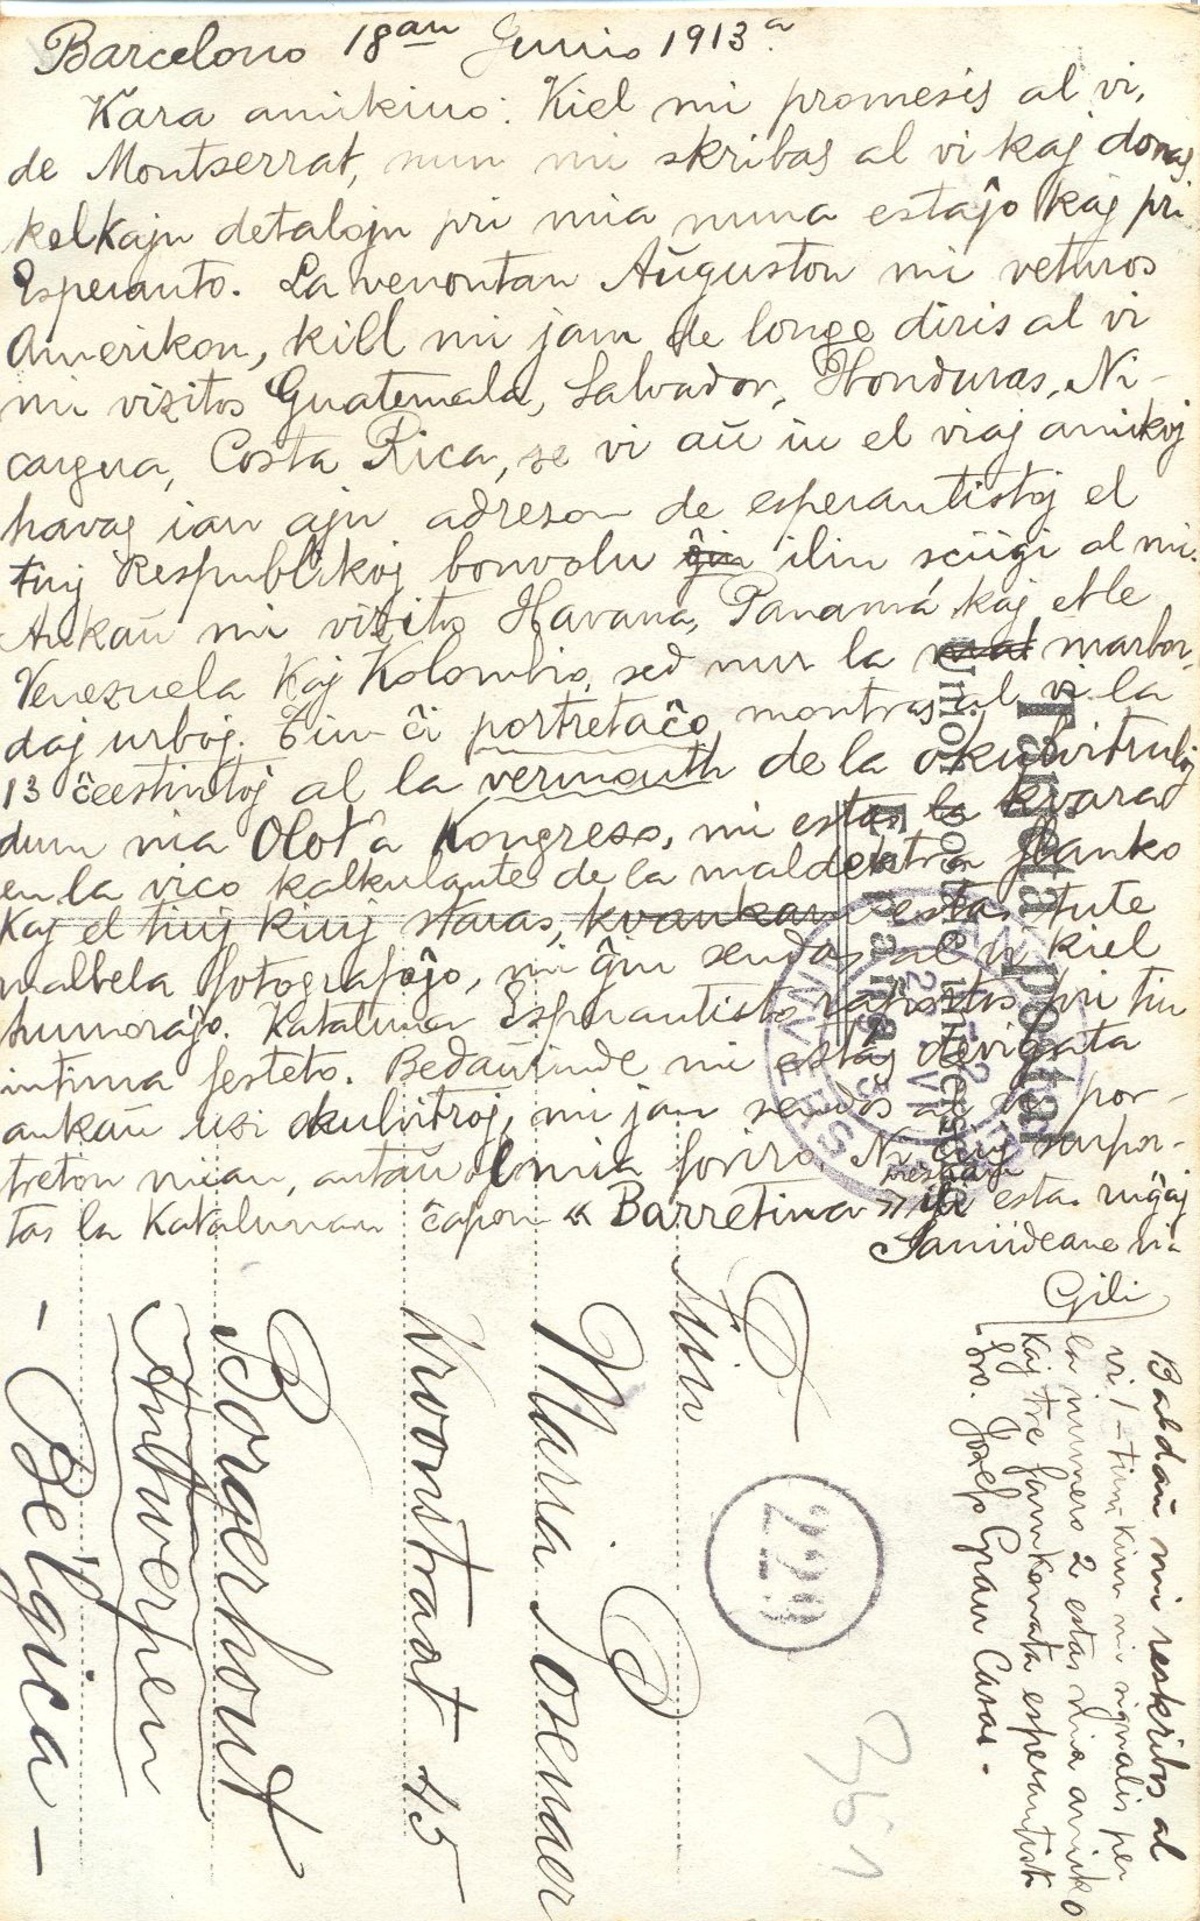 Barcelono 18an Junio 1913a
Kara amikino: Kiel mi promesis al vi,
de Montserrat, nun mi skribas al vi kaj donas
kelkajn detalojn pri mia nuna estaĵo kaj pri
Esperanto. La venontan Aŭguston mi veturos
Amerikon, kiel mi jam de longe diris al vi
mi vizitos Guatemala, Salvador, Honduras, Ni-
cargua, Costa Rica, se vi aŭ iu el viaj amikoj
havas ian ajn adreson de esperantistoj el
tiuj Respublikoj bonvolu ĝin ilin sciigi al mi.
Ankaŭ mi vizitos Havana, Panamá kaj eble
Venezuela kaj Kolombio, sed nur la mal marbor-
daj urboj. Tiun ĉi portretaĉo montras al vi la
13 ĉeestintoj al la vermouth de la okulvitruloj
dum nia Olot'a Kongreso, mi estas la kvara
en la vico kalkulante de la maldekstra flanko
kaj el tiuj kiuj staras, kvankam estas tute
malbela fotografaĵo, mi ĝin sendas al vi kiel
humoraĵo. Kataluna Esperantisto raportos pri tiu
intima festeto. Bedaŭrinde mi estas devigata
ankaŭ uzi okulvitroj, mi jam sendos al vi por-
treton mian, antaŭ ol mia foriro. Ni tiuj surpor-
tas la Katalunan ĉapon « Barretina » ili estas ruĝaj
Samideane via
Gili
Baldaŭ mi reskribos al
vi. 1 - tiun kiun mi signalis per
la numero 2 estas mia amiko
kaj tre fama konata esperantisto
Sro. Jozefo Grau Casas.
Tarjeta Postal
Union postale universelle
España
229
361
Fino
Maria Posenaer
Kroonstraat 45
Borgerhout
Antwerpen
- Bélgica -